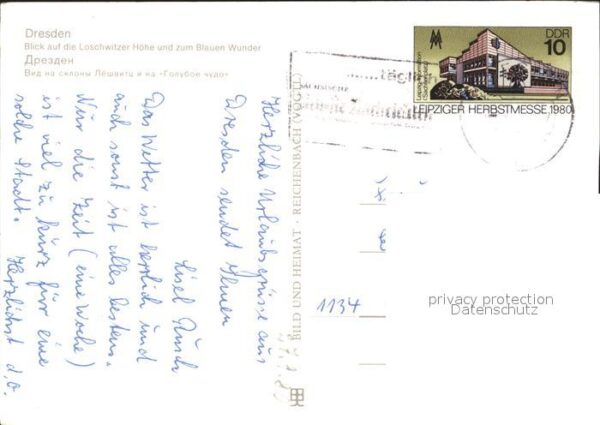 Dresden
Blick auf die Loschwitzer Höhe und zum Blauen Wunder
Дрезден
Вид на склоны Лёшвитц и на «Голубое чудо»
DDR
10
LEIPZIGER HERBSTMESSE 1980
täglich
Herzliche Urlaubsgrüsse aus
Dresden sendet Ihnen
Lisel
Das Wetter ist herrlich und
auch sonst ist alles bestens.
Nur die Zeit (eine Woche)
ist viel zu kurz für eine
solche Stadt.
Herzlichst d.o.
BILD UND HEIMAT · REICHENBACH (VOGTL)
1134
privacy protection
Datenschutz